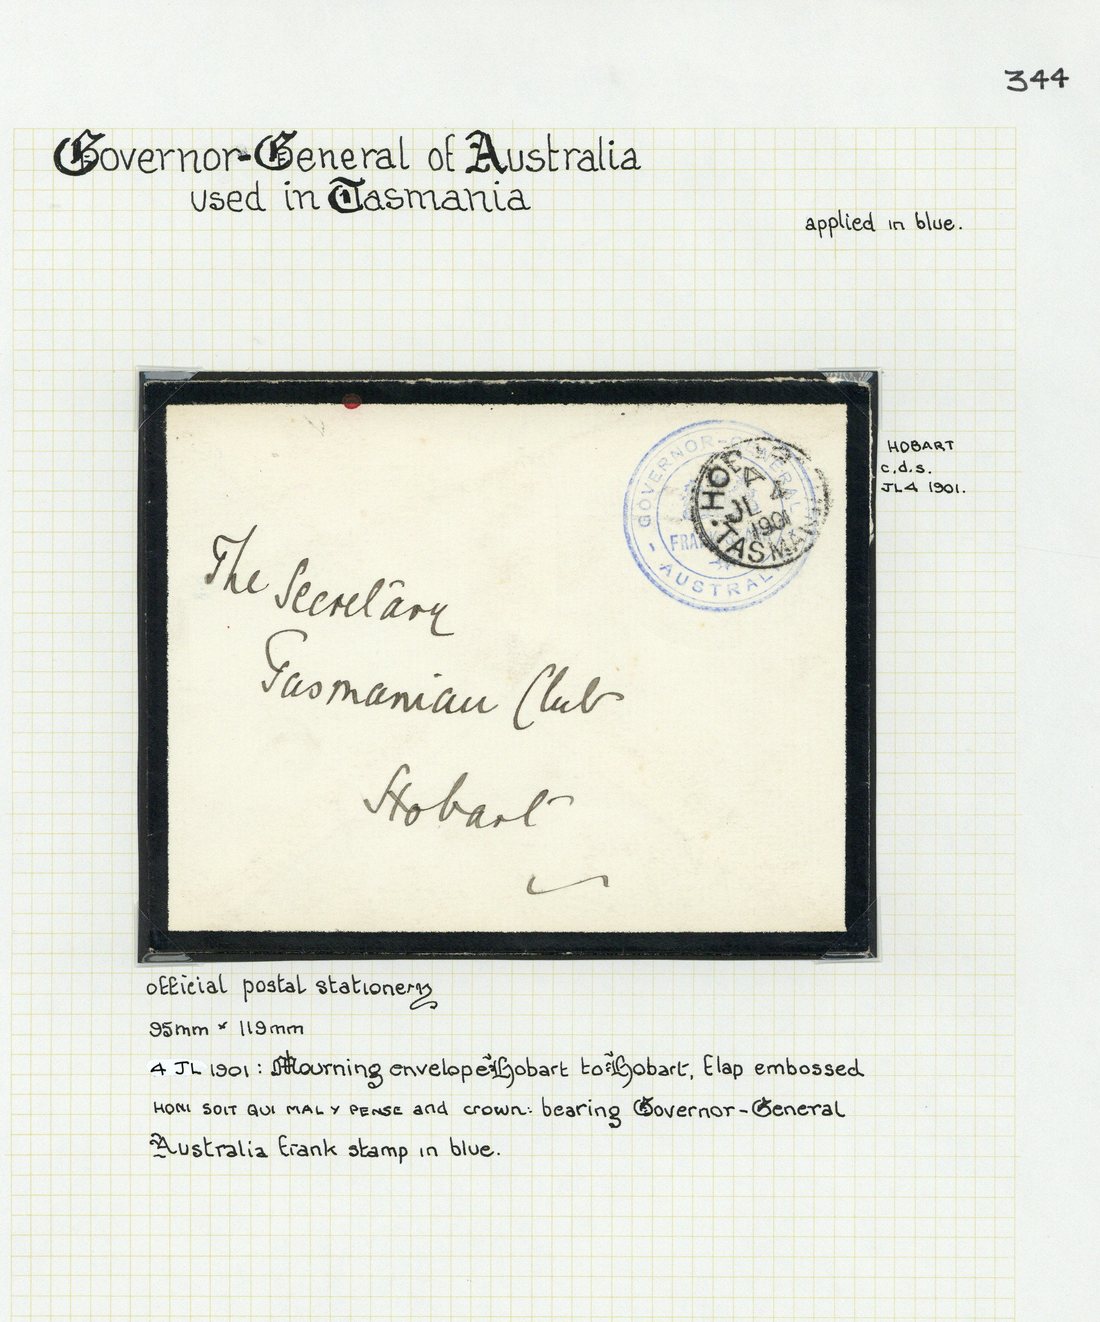 344
Governor-General of Australia
used in Tasmania
applied in blue.
GOVERNOR-GENERAL
AUSTRALIA
HOBART
A
4
JL
1901
TASMANIA
HOBART
c.d.s.
JL4 1901.
The Secretary
Tasmanian Club
Hobart
official postal stationery
95mm × 119mm
4 JL 1901: Mourning envelope Hobart to Hobart, flap embossed
HONI SOIT QUI MAL Y PENSE and crown: bearing Governor-General
Australia frank stamp in blue.